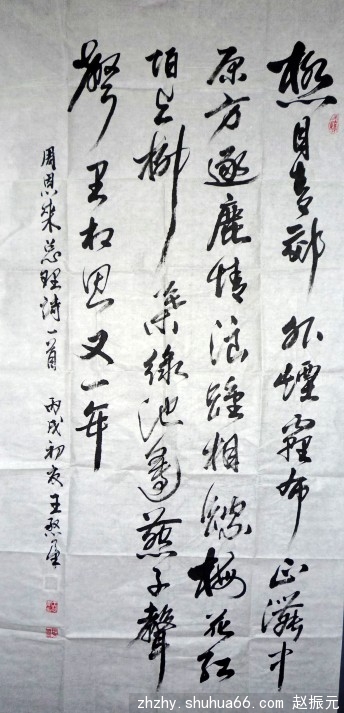 極目青郊外煙霾布正濃中
原方逐鹿博浪踵相踪櫻花红
陌上柳葉綠池邊燕子聲
聲里相思又一年
周恩来总理詩一首 丙戌初夏王
zhzhy.shuhua66.com 赵振元